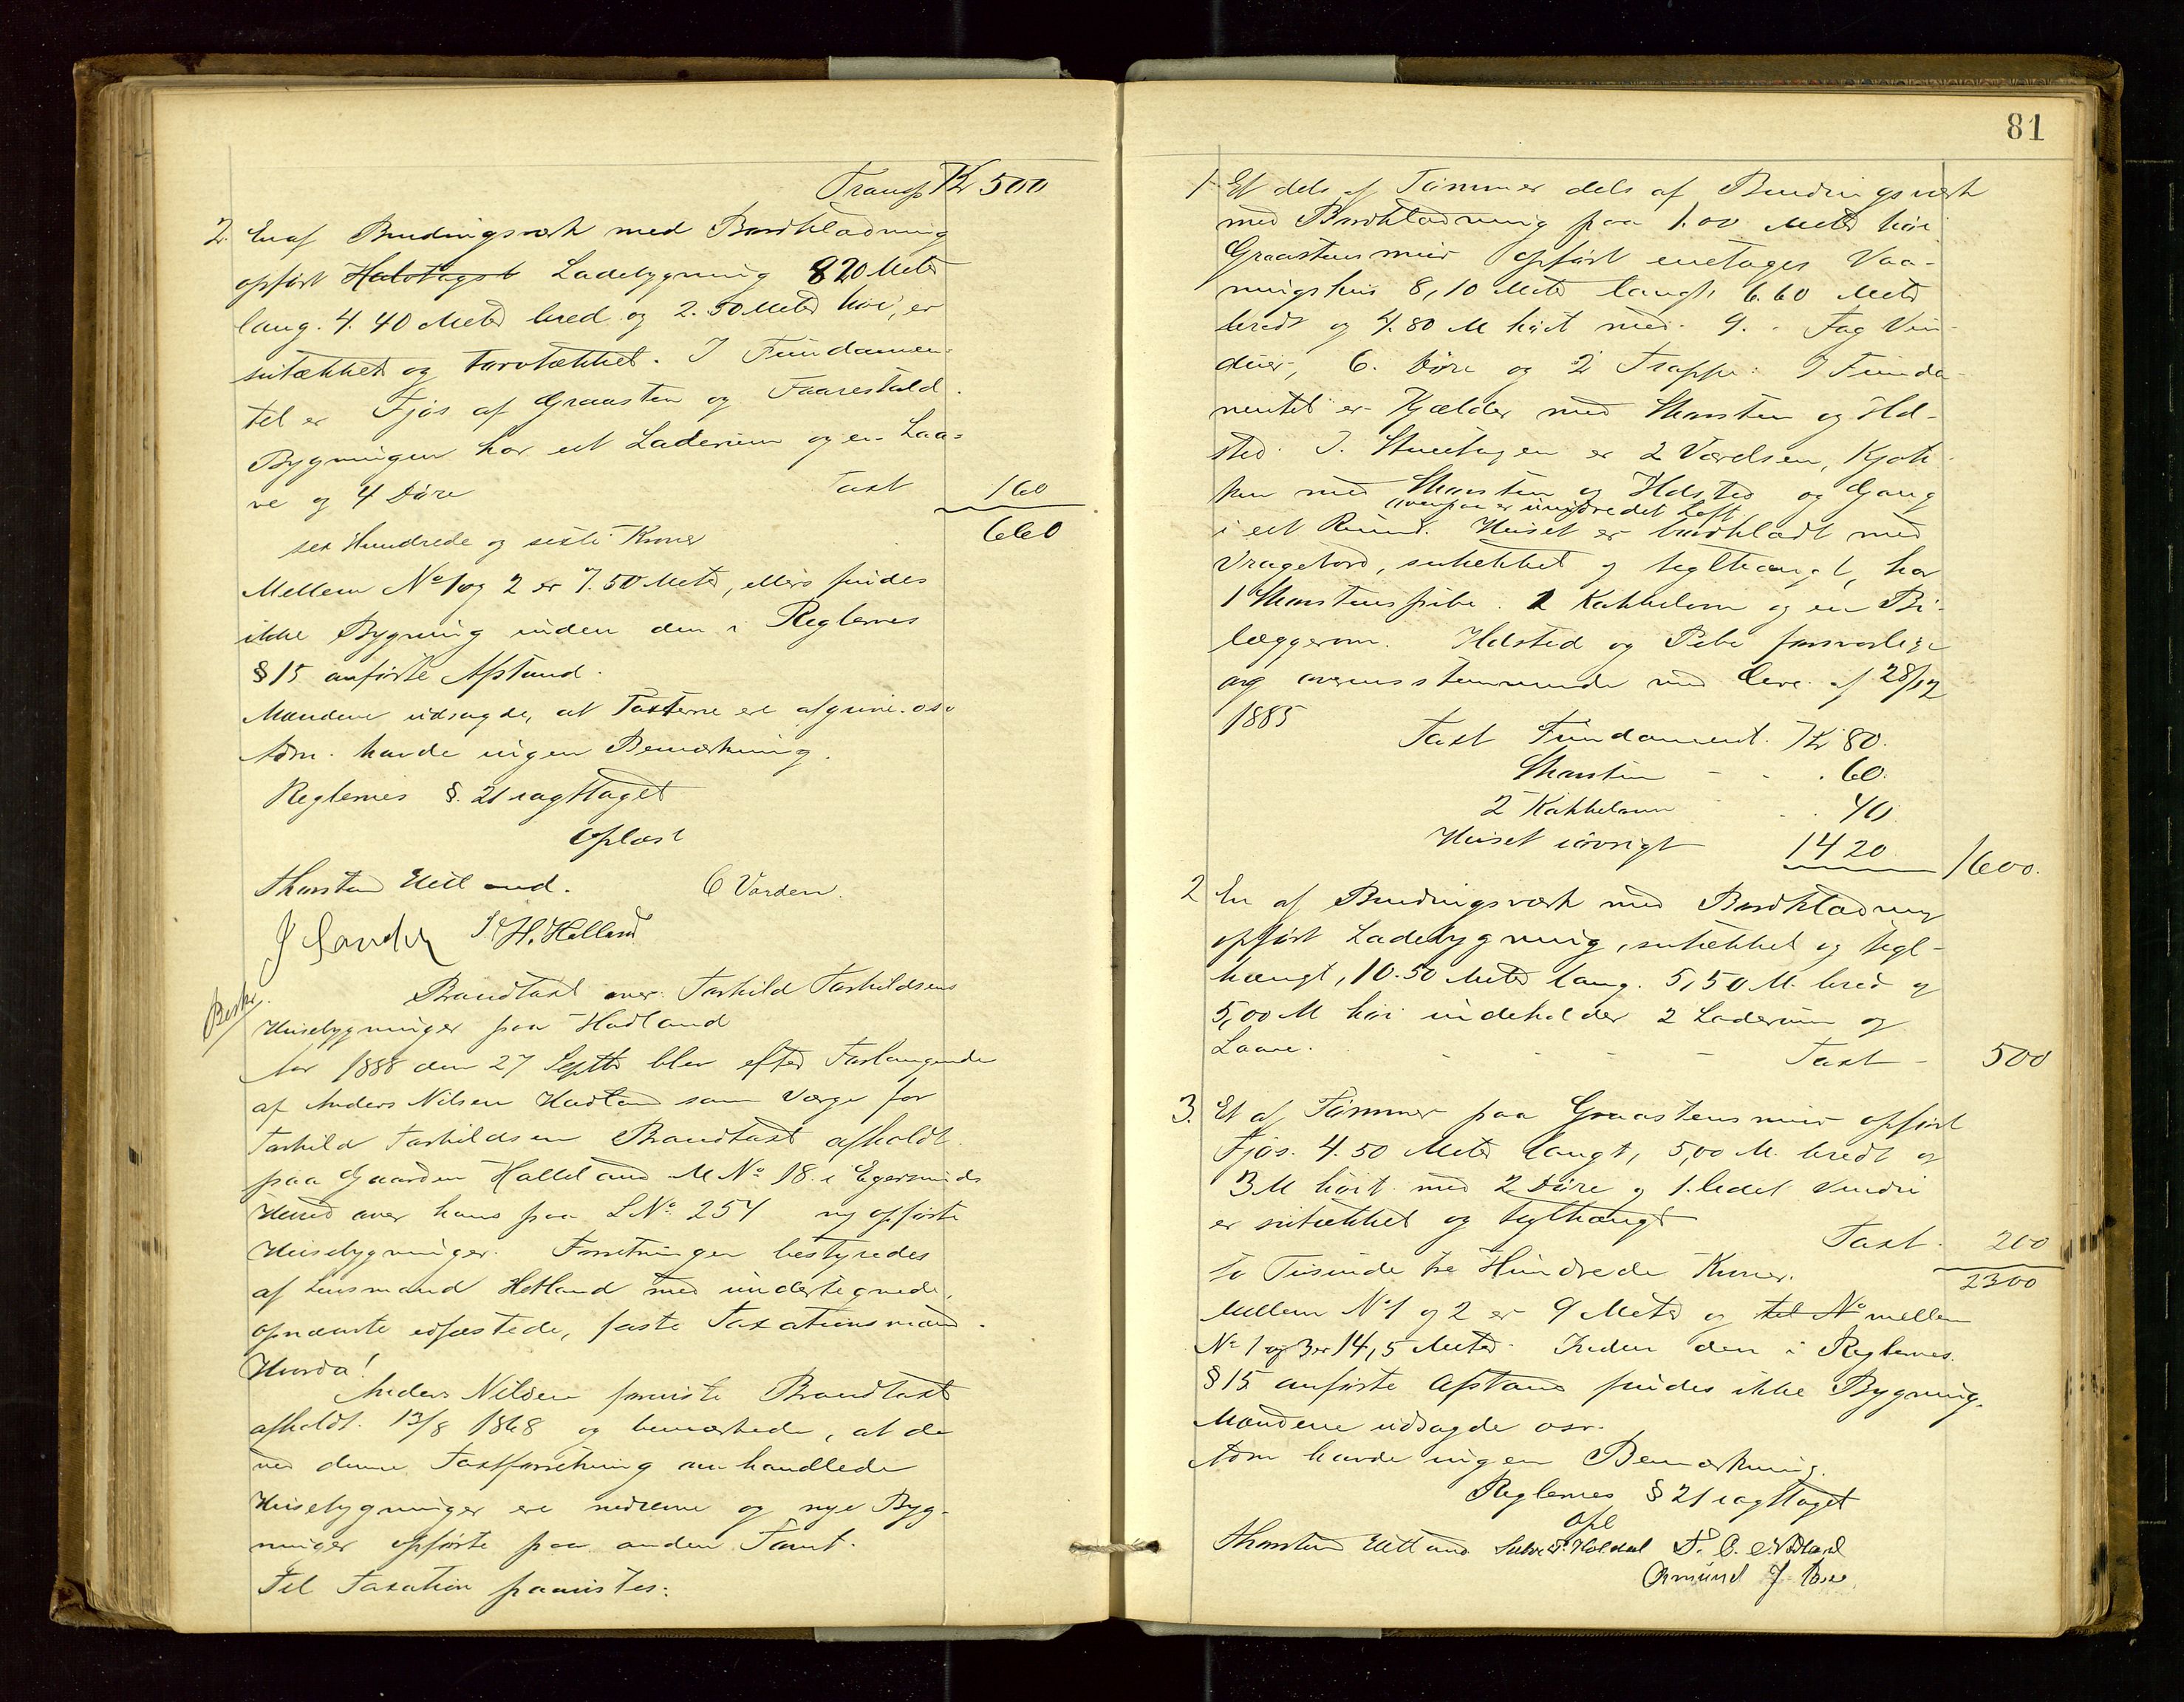 Transp Kr 500
2. En af Bindingsværk med Bordklædning
opført Halvtagsb Ladebygning 820 Meter
lang. 4.40 Meter bred og 2.50 Meter höi, er
sutækket og torvtækket. I Fundamen-
tet er Fjös af Graasten og Faarestald.
Bygningen har et Laderum og en Laa-
ve og 4 Döre Taxt 160
sex Hundrede og sexti Kroner 660
Mellem No 1 og 2 er 7.50 Meter, ellers findes
ikke Bygning inden den i Reglernes
§ 15 anförte Afstand.
Mændene udsagde, at Taxterne ere afgivne osv
Adm. havde ingen Bemærkning.
Reglernes §. 21 iagttaget
Oplæst
Thorsten Uetland. C Varden.
H. Helland
Beskr.
Brandtaxt over Torkild Torkildsens
Husebygninger paa Hadland
Aar 1888 den 27 Septbr blev efter Forlangende
af Anders Nilsen Hadland som Værge for
Torkild Torkildsen Brandtaxt afholdt
paa Gaarden Halleland M No 18. i Egersunds
Herred over hans paa L No. 254 ny opförte
Husebygninger. Forretningen bestyredes
af Lensmand Hetland med undertegnede,
opnævnte edfæstede, faste Taxationsmænd.
Hvorda!
Anders Nilsen foreviste Brandtaxt
afholdt 13/8 1868 og bemærkede, at de
ved denne Taxtforretning omhandlede
Husebygninger ere nedrevne og nye Byg-
ninger opförte paa anden Tomt.
Til Taxation paavistes:
81
1 Et dels af Tömmer dels af Bindingsværk
med Bordklædning paa 1.00 Meter höi
Graastensmur opfört enetages Vaa-
ningshus 8,10 Meter langt, 6.60 Meter
bredt og 4.80 M höit med 9. Fag Vin-
duer, 6. Döre og 2 Trappe: I Funda-
mentet er Kjælder med Skorsten og Ild-
sted. I Stueetagen er 2 Værelsen, Kjök-
ken med Skorsten og Ildsted og Gang
ovenpaa er uindredet Loft
i et Rum. Huset er bordklædt med
Vragebord, sutækket og teglhængt, har
1 Skorstenspibe. 2 Kakkelovn og en Bi-
læggerovn. Ildsted og Pibe forsvarlige
og overensstemmende med Cirk. af 28/12
1885
Taxt Fundament. Kr 80.
Skorsten - - . 60.
2 Kakkelovn . 40
Huset iövrigt 1420 1600.
2 En af Bindingsværk med Bordklædning
opfört Ladebygning, sutækket og tegl-
hængt, 10.50 Meter lang. 5,50 M. bred og
5,00 M höi indeholder 2 Laderum og
Laave. - - - - Taxt - 500
3. Et af Tömmer paa Graastensmur opfört
Fjös. 4.50 Meter langt, 5,00 M. bredt og
3 M höit med 2 Döre og 1. ledet Vindu
er sutækket og teglhængt
Taxt. 200
to Tusinde tre Hundrede Kroner. 2300
Mellem No 1 og 2 er 9 Meter og til No mellem
No 1 og 3 er 14,5 Meter. Inden den i Reglernes
§ 15 anförte Afstand findes ikke Bygning.
Mændene udsagde osv.
Adm havde ingen Bemærkning.
Reglernes § 21 iagttaget
Opl
Thorsten Uetland